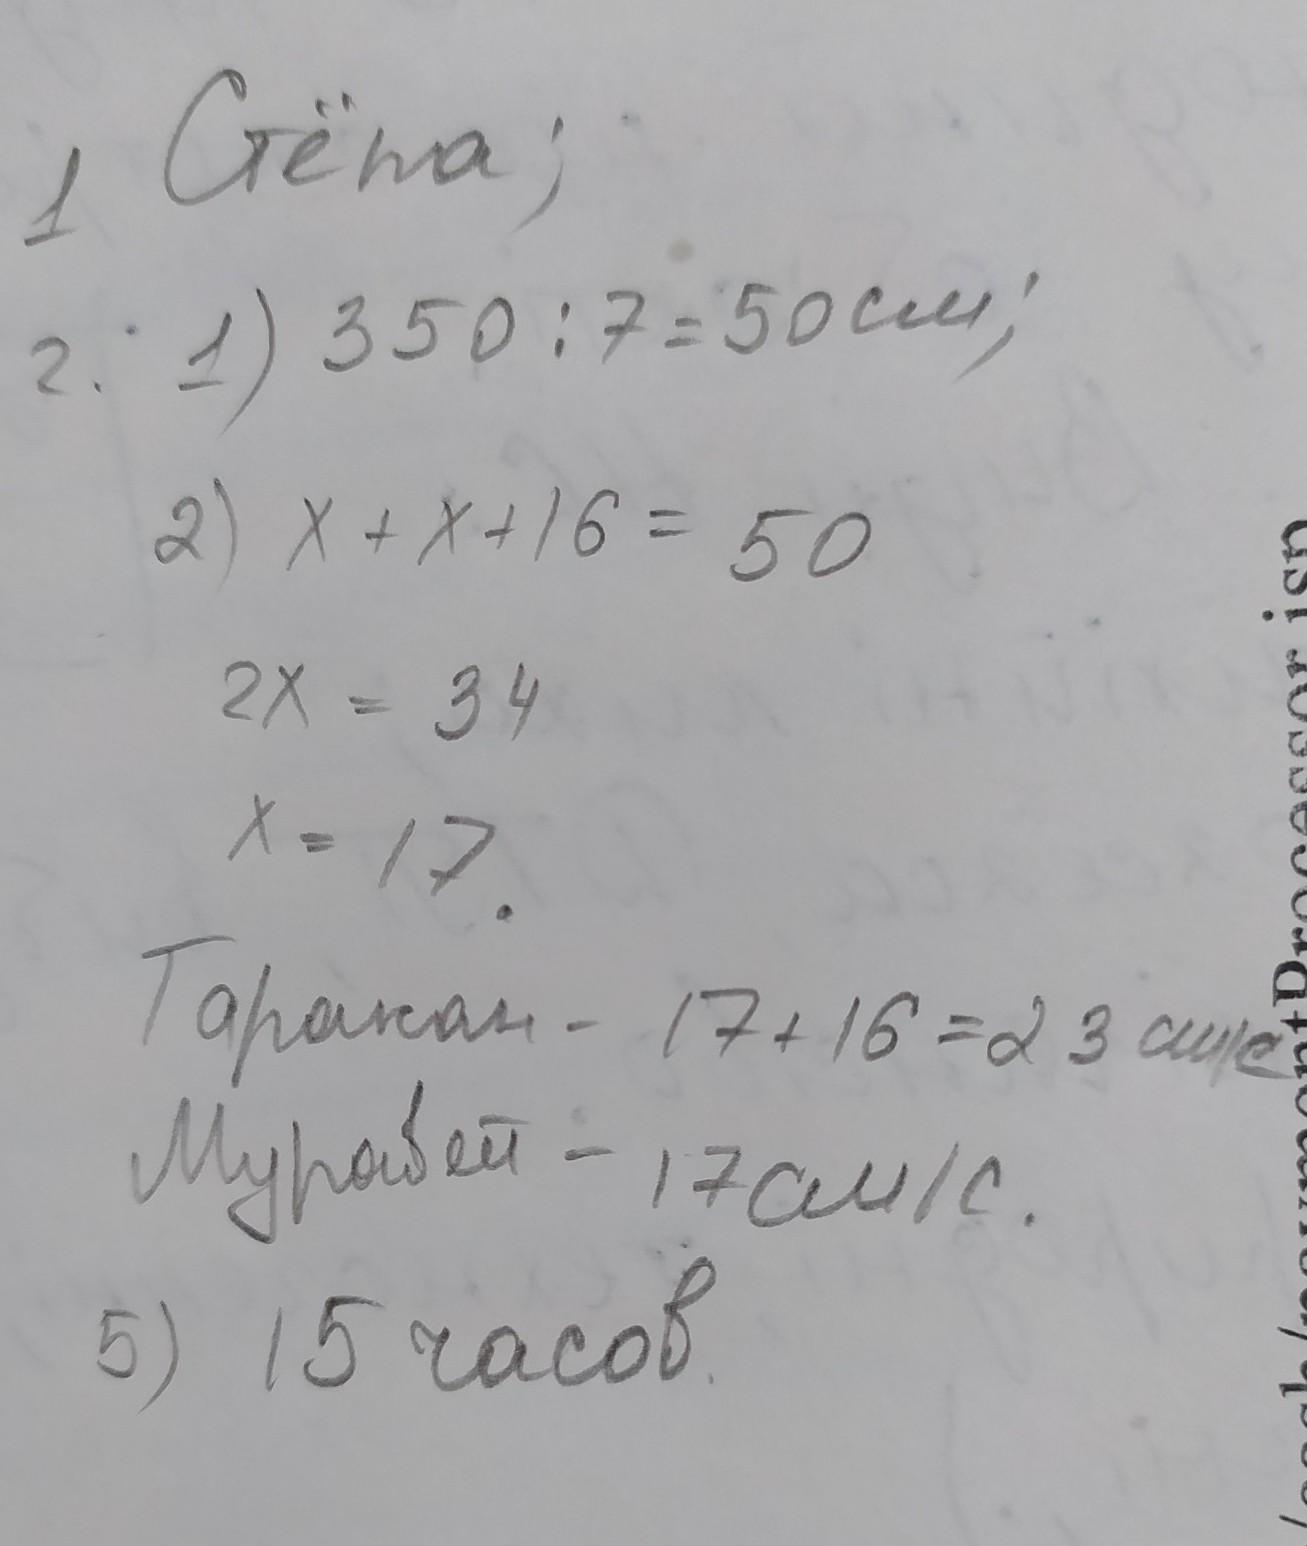 1 Стёпа;
2. 1) 350 : 7 = 50 см;
2) x + x + 16 = 50
2x = 34
x = 17.
Таракан - 17 + 16 = 23 см/с
Муравей - 17 см/с.
5) 15 часов.